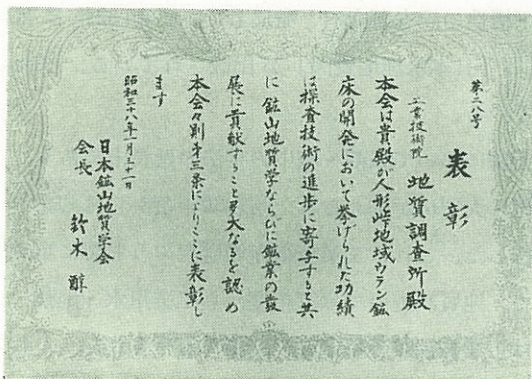 第二八号
表彰
工業技術院 地質調査所殿
本会は貴殿が人形峠地域ウラン鉱
床の開発において挙げられた功績
は探査技術の進歩に寄与すると共
に鉱山地質学ならびに鉱業の発
展に貢献すること多大なるを認め
本会々則第三条によりここに表彰し
ます
昭和三十八年一月三十一日
日本鉱山地質学会
会長 鈴木醇